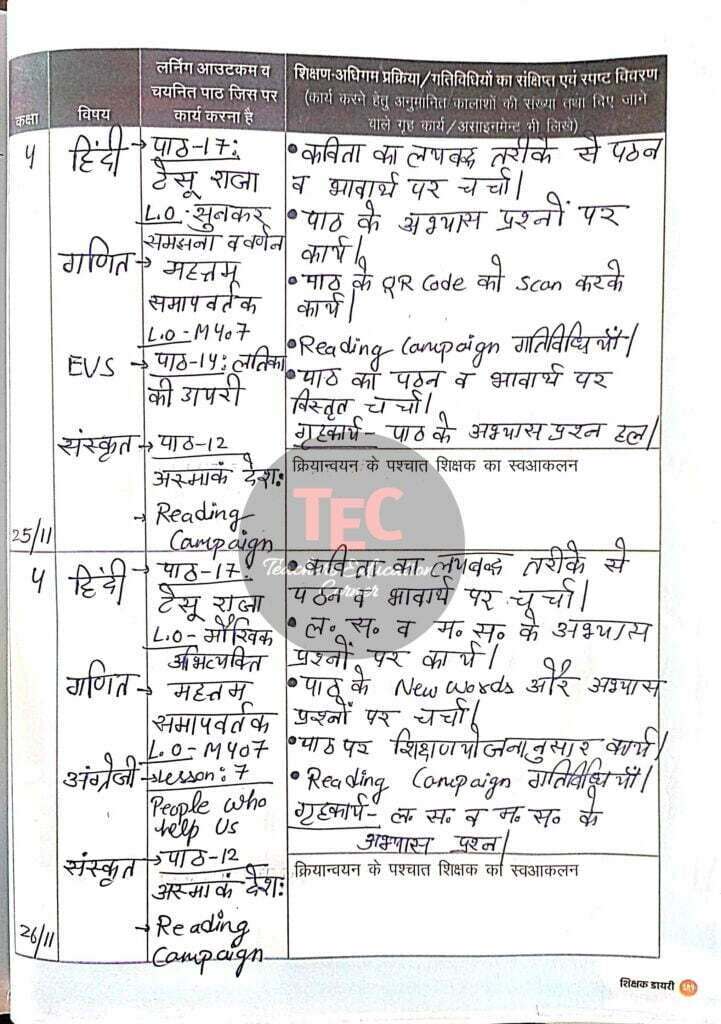 कक्षा
विषय
लर्निंग आउटकम व
चयनित पाठ जिस पर
कार्य करना है
शिक्षण-अधिगम प्रक्रिया/गतिविधियों का संक्षिप्त एवं स्पष्ट विवरण
(कार्य करने हेतु अनुमानित कालांशों की संख्या तथा दिए जाने
वाले गृह कार्य/असाइनमेन्ट भी लिखें)
4
हिंदी → पाठ-17:
टेसू राजा
L.O-सुनकर
समझना व वर्णन
गणित → महत्तम
समापवर्तक
L.O-M407
EVS → पाठ-14: लतिका
की उापरी
संस्कृत → पाठ-12
अस्माकं देश:
→ Reading
Campaign
25/11
• कविता का लयबद्ध तरीके से पठन
व भावार्थ पर चर्चा।
• पाठ के अभ्यास प्रश्नों पर
कार्य।
• पाठ के QR Code को Scan करके
कार्य।
• Reading Campaign गतिविधियाँ।
• पाठ का पठन व भावार्थ पर
विस्तृत चर्चा।
गृहकार्य- पाठ के अभ्यास प्रश्न हल।
क्रियान्वयन के पश्चात शिक्षक का स्वआकलन
TEC
Teachers Education
Corner
4
हिंदी → पाठ-17
टेसू राजा
L.O-मौखिक
अभिव्यक्ति
गणित → महत्तम
समापवर्तक
L.O-M407
अंग्रेजी → Lesson: 7
People who
help Us
संस्कृत → पाठ-12
अस्माकं देश:
→ Reading
Campaign
26/11
• कविता का लयबद्ध तरीके से
पठन व भावार्थ पर चर्चा।
• ल. स. व म. स. के अभ्यास
प्रश्नों पर कार्य।
• पाठ के New words और अभ्यास
प्रश्नों पर चर्चा।
• पाठ पर शिक्षण योजनानुसार कार्य।
• Reading Campaign गतिविधियाँ।
गृहकार्य- ल. स. व म. स. के
अभ्यास प्रश्न।
क्रियान्वयन के पश्चात शिक्षक का स्वआकलन
शिक्षक डायरी